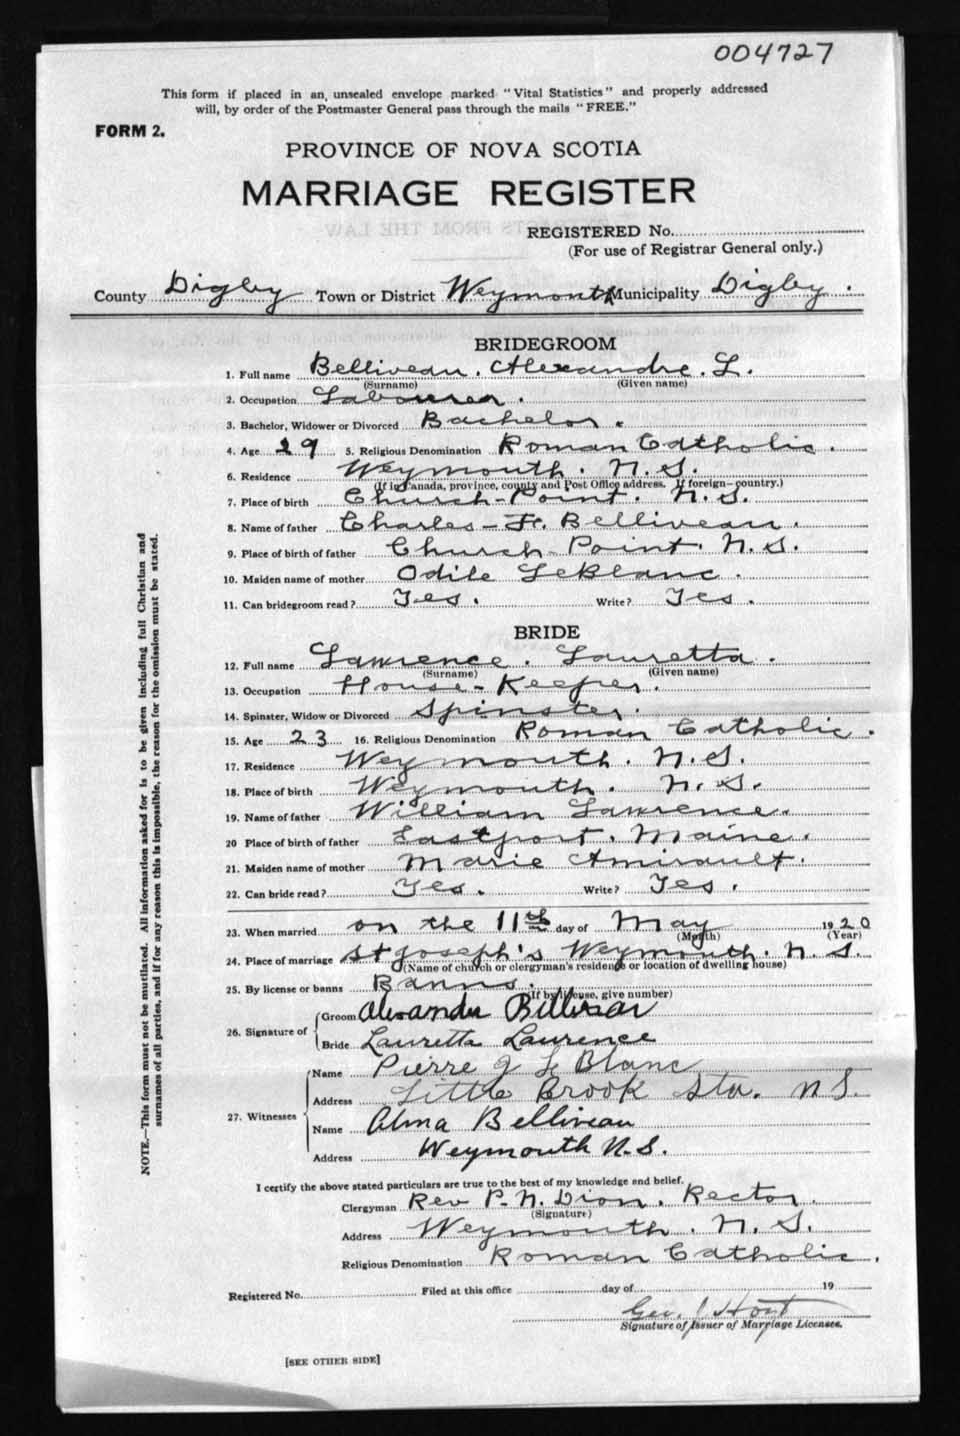 004727
This form if placed in an, unsealed envelope marked "Vital Statistics" and properly addressed
will, by order of the Postmaster General pass through the mails "FREE."
FORM 2.
PROVINCE OF NOVA SCOTIA
MARRIAGE REGISTER
REGISTERED No.
(For use of Registrar General only.)
County Digby Town or District Weymouth Municipality Digby.
BRIDEGROOM
1. Full name Belliveau. Alexandre. L.
(Surname) (Given name)
2. Occupation Labourer.
3. Bachelor, Widower or Divorced Bachelor.
4. Age 29 5. Religious Denomination Roman Catholic.
6. Residence Weymouth. N.S.
(If in Canada, province, county and Post Office address. If foreign—country.)
7. Place of birth Church-Point. N.S.
8. Name of father Charles-F. Belliveau.
9. Place of birth of father Church-Point. N.S.
10. Maiden name of mother Odile LeBlanc.
11. Can bridegroom read? Yes. Write? Yes.
BRIDE
12. Full name Lawrence. Lauretta.
(Surname) (Given name)
13. Occupation House-Keeper.
14. Spinster, Widow or Divorced Spinster.
15. Age 23 16. Religious Denomination Roman Catholic.
17. Residence Weymouth. N.S.
18. Place of birth Weymouth. N.S.
19. Name of father William Lawrence.
20 Place of birth of father Eastport. Maine.
21. Maiden name of mother Marie Amirault.
22. Can bride read? Yes. Write? Yes.
23. When married on the 11th day of May 1920
(Month) (Year)
24. Place of marriage St Joseph's Weymouth. N.S.
(Name of church or clergyman's residence or location of dwelling house)
25. By license or banns Banns.
(If by license, give number)
26. Signature of Groom Alexander Belliveau
Bride Lauretta Laurence
27. Witnesses Name Pierre J Le Blanc
Address Little Brook Sta. N.S.
Name Alma Belliveau
Address Weymouth N.S.
I certify the above stated particulars are true to the best of my knowledge and belief.
Clergyman Rev P. N. Dion. Rector.
(Signature)
Address Weymouth. N.S.
Religious Denomination Roman Catholic.
Registered No. Filed at this office day of 19
Geo. J Hoyt
Signature of Issuer of Marriage Licenses.
[SEE OTHER SIDE]
NOTE.—This form must not be mutilated. All information asked for is to be given including full Christian and
surnames of all parties, and if for any reason this is impossible, the reason for the omission must be stated.